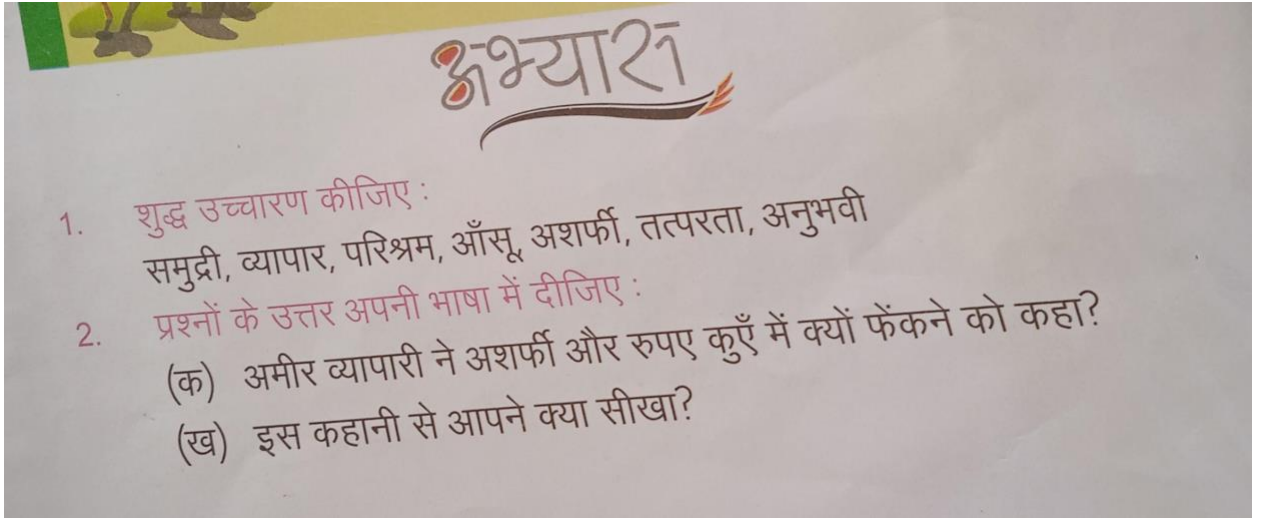 अभ्यास
1. शुद्ध उच्चारण कीजिए :
समुद्री, व्यापार, परिश्रम, आँसू, अशर्फी, तत्परता, अनुभवी
2. प्रश्नों के उत्तर अपनी भाषा में दीजिए :
(क) अमीर व्यापारी ने अशर्फी और रुपए कुएँ में क्यों फेंकने को कहा?
(ख) इस कहानी से आपने क्या सीखा?